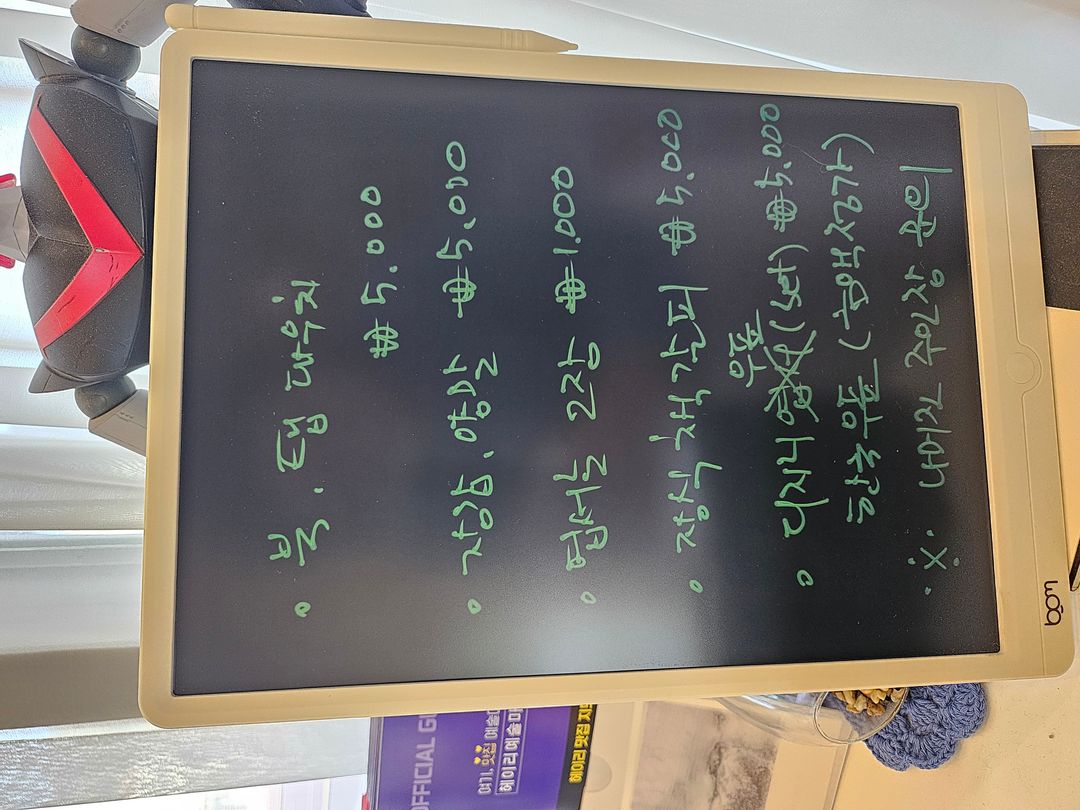 • 북, 탭 파우치
₩ 5.000
• 장갑, 양말 ₩5,000
• 엽서는 2장 ₩1.000
• 장식 책갈피 ₩5,000
우표
• 디지니 엽서 (set) ₩5.000
한국우표 (금액정가)
※ 나머진 주인장 문의
bom
OFFICIAL GU
여기, 맛집 예술
헤이리예술마
헤이리 맛집 지도